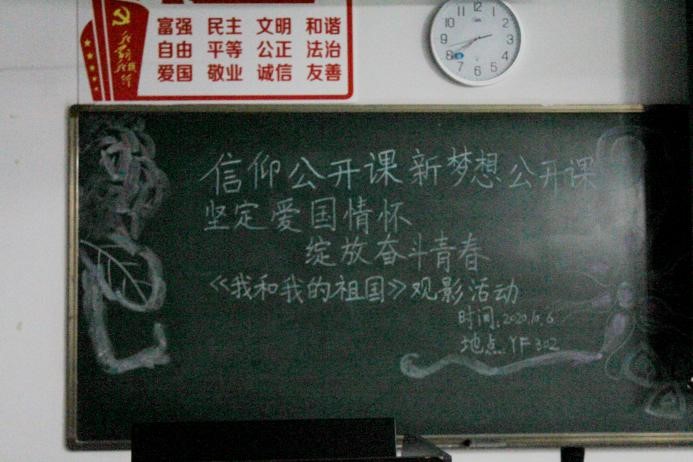 富强 民主 文明 和谐
自由 平等 公正 法治
爱国 敬业 诚信 友善
12
1
2
3
4
5
6
7
8
9
10
11
信仰公开课新梦想公开课
坚定爱国情怀
绽放奋斗青春
《我和我的祖国》观影活动
时间:2020.10.6
地点:YF302